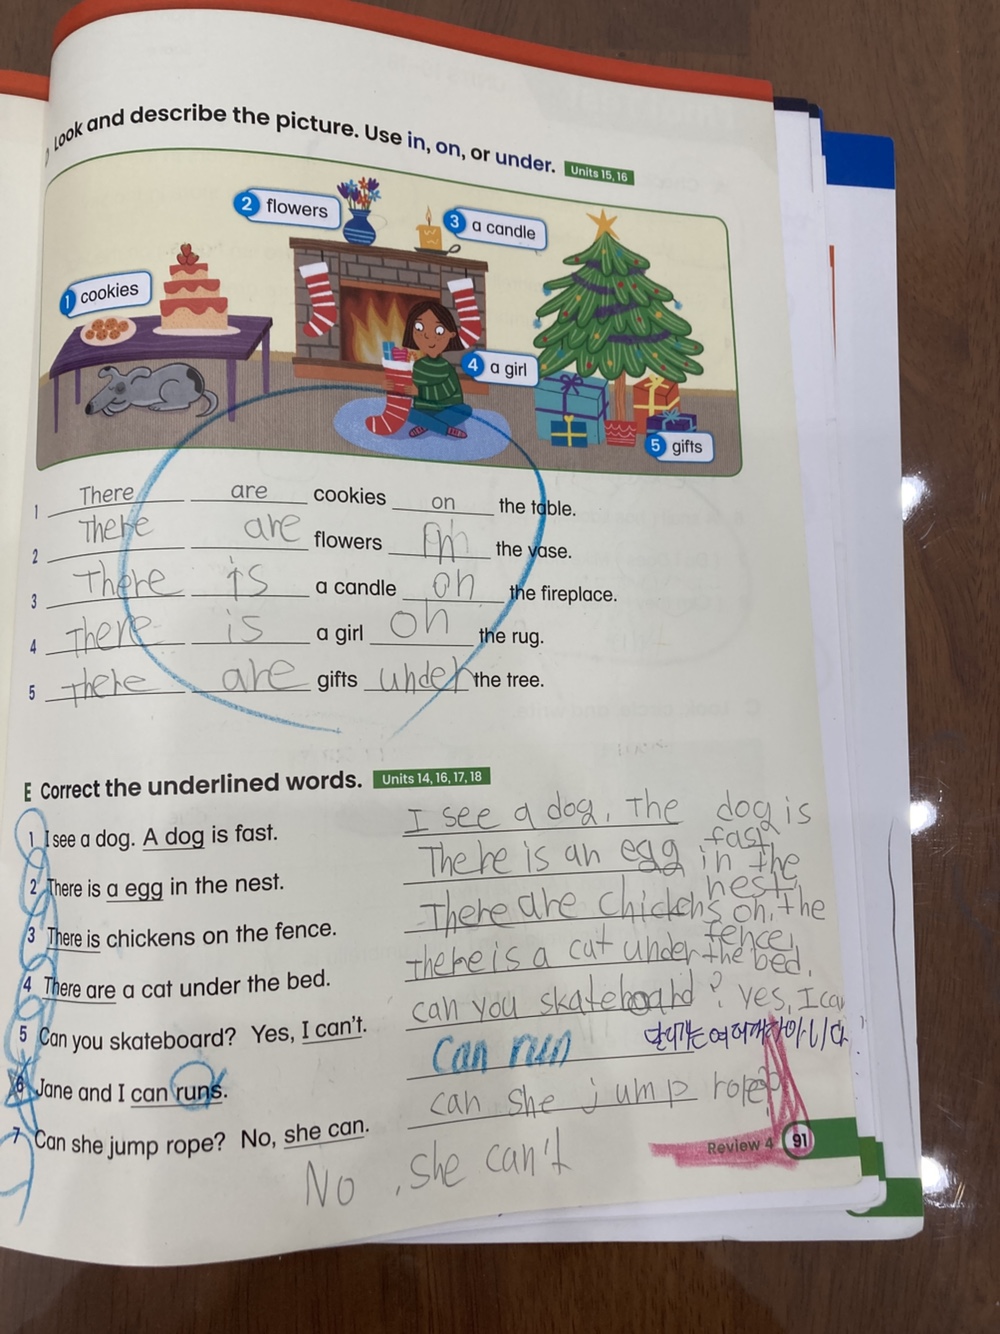 Look and describe the picture. Use in, on, or under. Units 15, 16
2 flowers
3 a candle
1 cookies
4 a girl
5 gifts
1 There are cookies on the table.
2 There are flowers in the vase.
3 There is a candle on the fireplace.
4 There is a girl on the rug.
5 There are gifts under the tree.
E Correct the underlined words. Units 14, 16, 17, 18
1 I see a dog. A dog is fast.
I see a dog. The dog is
fast
2 There is a egg in the nest.
There is an egg in the
nest.
3 There is chickens on the fence.
There are chickens on the
fence.
4 There are a cat under the bed.
there is a cat under the bed.
5 Can you skateboard? Yes, I can't.
can you skateboard? Yes, I can
6 Jane and I can runs.
Can run
7 Can she jump rope? No, she can.
can she jump rope?
No, she can't
Review 4 91